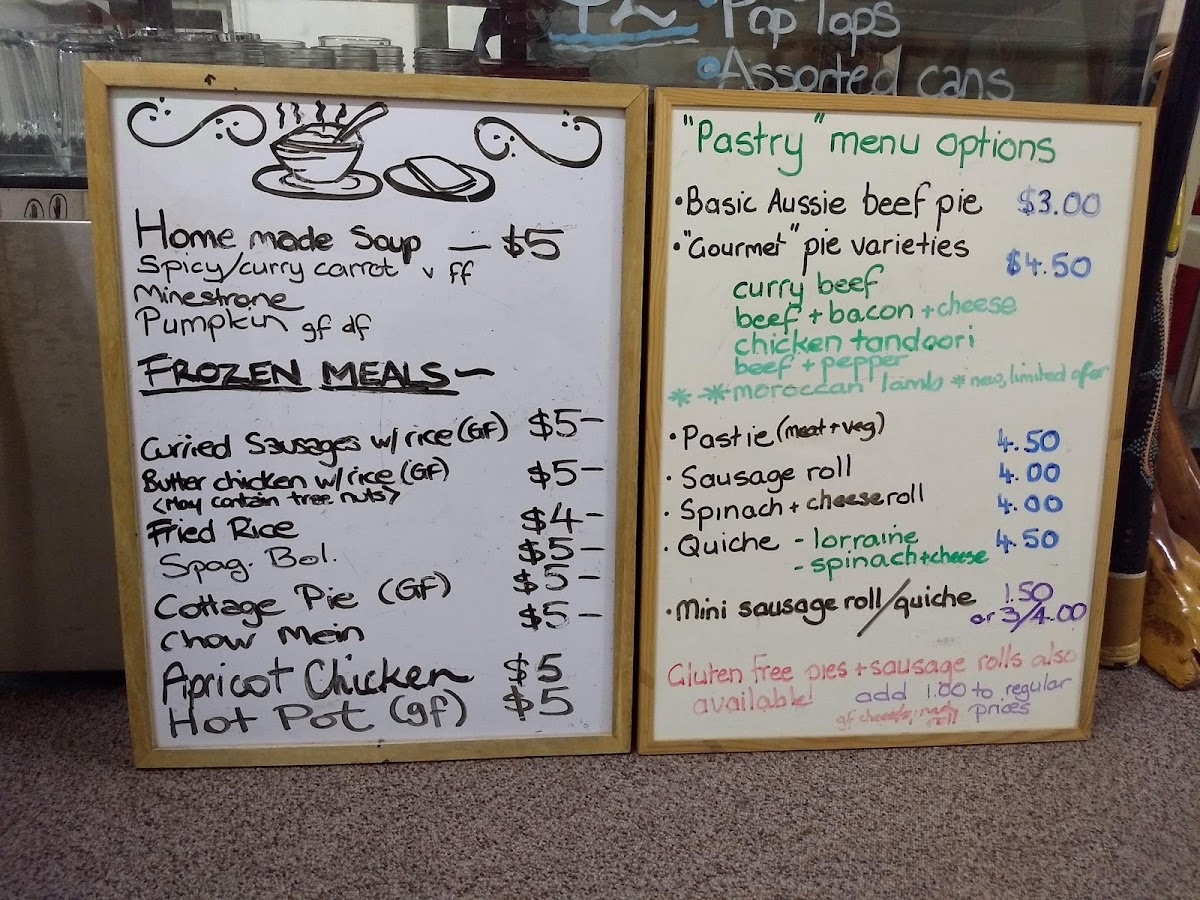 Pop Tops
Assorted cans
Home made Soup — $5
Spicy/curry carrot v ff
Minestrone
Pumpkin gf df
FROZEN MEALS —
Curried Sausages w/rice (GF) $5 –
Butter chicken w/rice (GF) $5 –
<May contain tree nuts>
Fried Rice $4 –
Spag. Bol. $5 –
Cottage Pie (GF) $5 –
Chow Mein $5 –
Apricot Chicken $5
Hot Pot (gf) $5
"Pastry" menu options
• Basic Aussie beef pie $3.00
• "Gourmet" pie varieties $4.50
curry beef
beef + bacon + cheese
chicken tandoori
beef + pepper
* * moroccan lamb * new, limited offer
• Pastie (meat + veg) 4.50
• Sausage roll 4.00
• Spinach + cheese roll 4.00
• Quiche - lorraine 4.50
- spinach + cheese
• Mini sausage roll/quiche 1.50
or 3/4.00
Gluten free pies + sausage rolls also
available! add 1.00 to regular
prices
gf roll